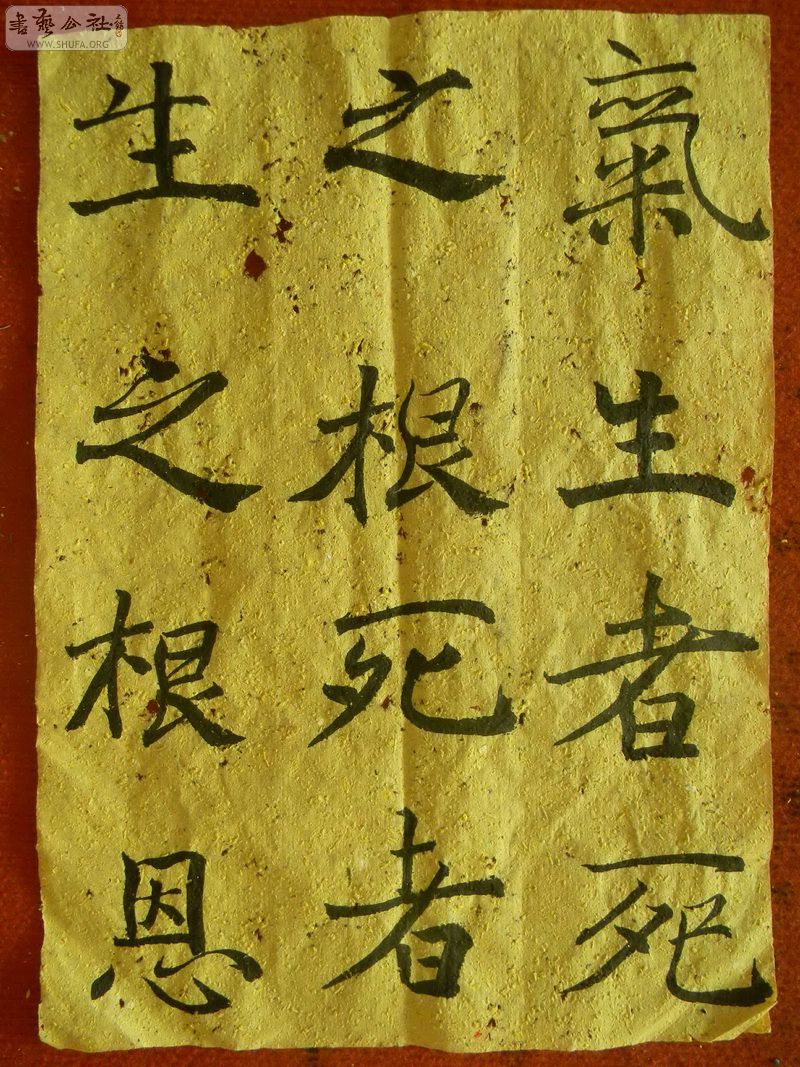 氣生者死
之根死者
生之根恩
書藝公社
WWW.SHUFA.ORG